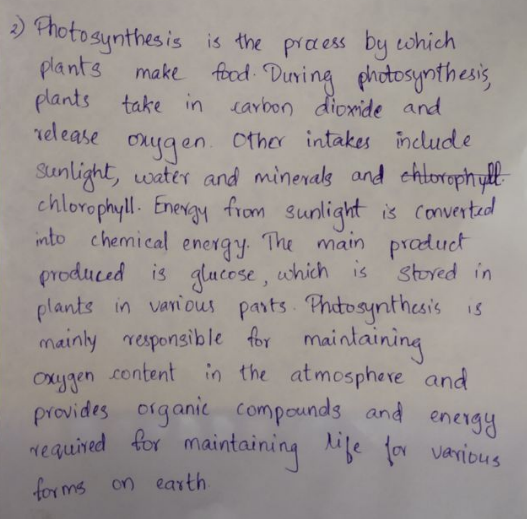 2) Photosynthesis is the process by which
plants make food. During photosynthesis,
plants take in carbon dioxide and
release oxygen. Other intakes include
sunlight, water and minerals and chlorophyll.
chlorophyll. Energy from sunlight is converted
into chemical energy. The main product
produced is glucose, which is stored in
plants in various parts. Photosynthesis is
mainly responsible for maintaining
oxygen content in the atmosphere and
provides organic compounds and energy
required for maintaining life for various
forms on earth.